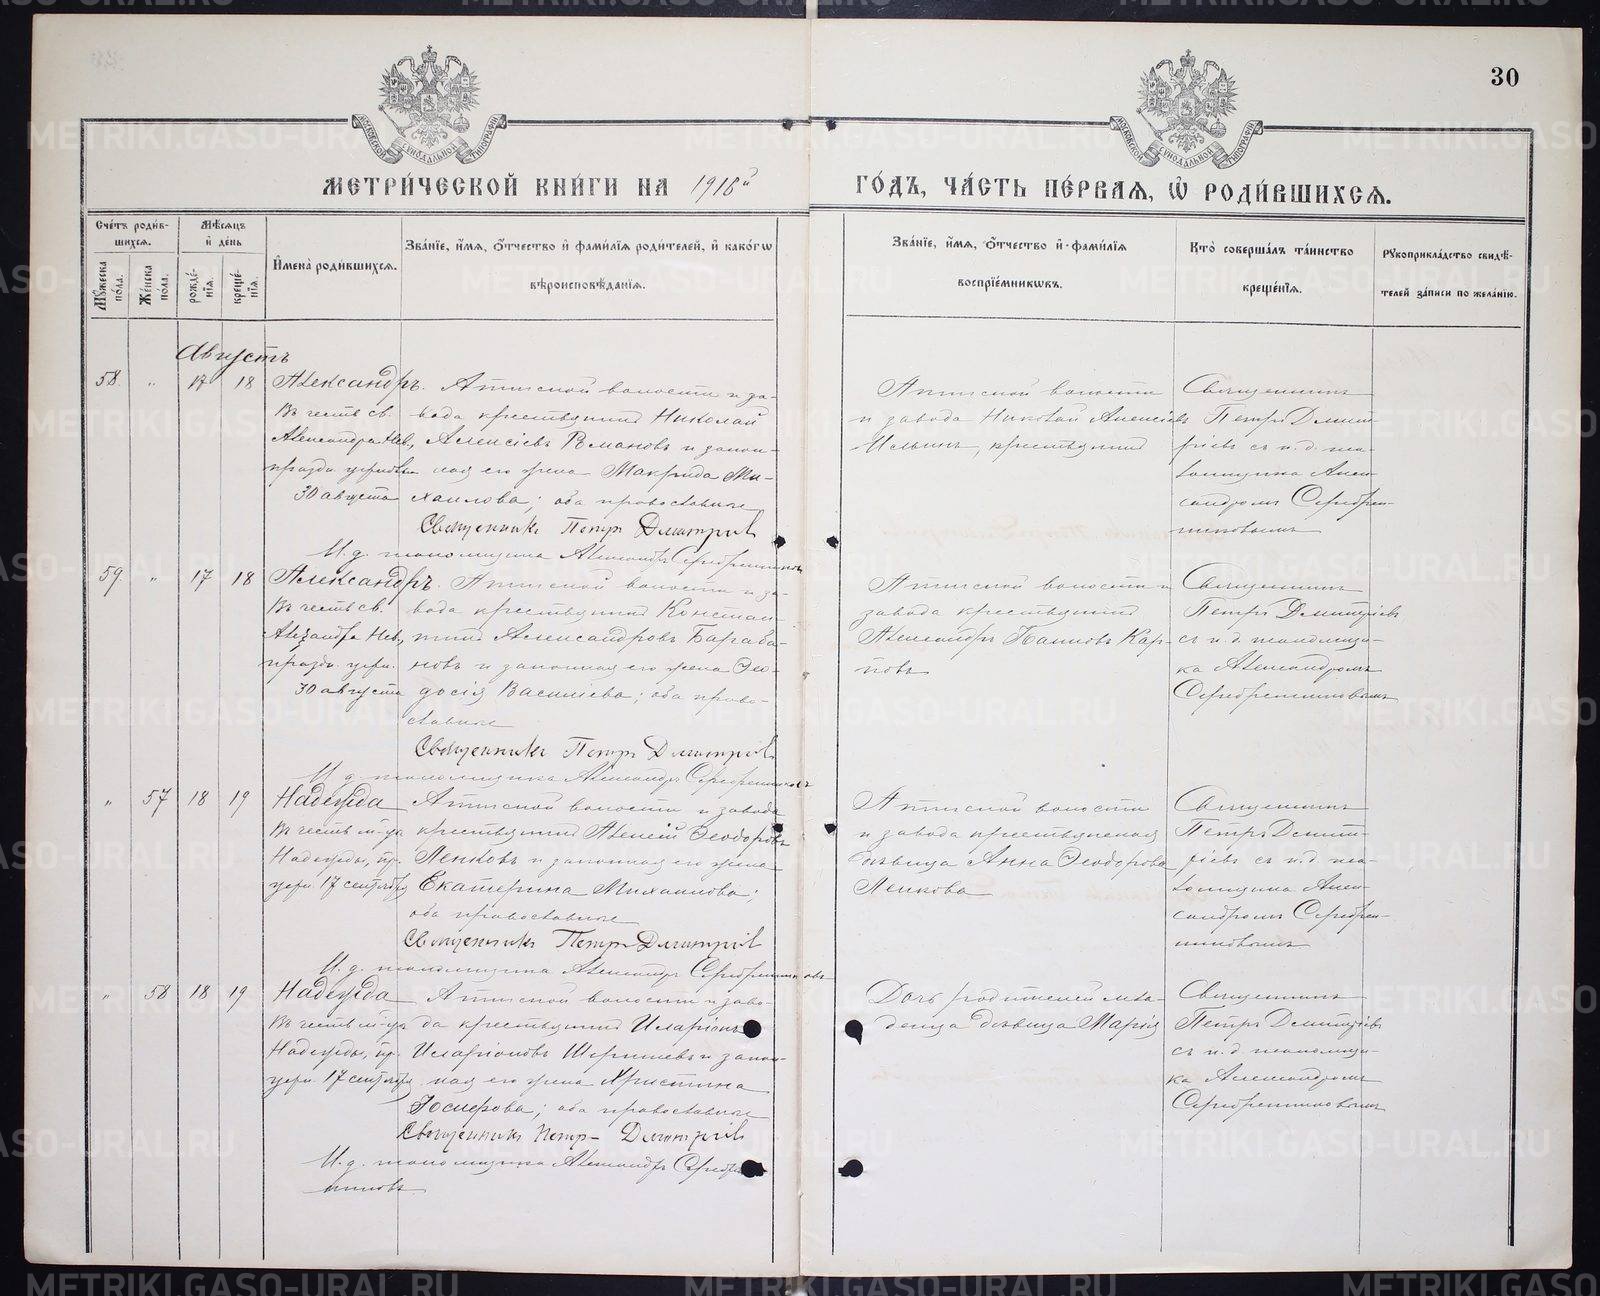 30
МОСКОВСКОЙ СѴНОДАЛЬНОЙ ТИПОГРАФІИ
МОСКОВСКОЙ СѴНОДАЛЬНОЙ ТИПОГРАФІИ
МЕТРИ́ЧЕСКОЙ КНИ́ГИ НА 1918й
ГО́ДЪ, ЧА́СТЬ ПЕ́РВАЯ, Ѡ҆ РОДИ́ВШИХСЯ.
Сче́тъ роди́в-
шихся.
Мꙋ́жеска по́ла.
Же́нска по́ла.
Мѣ́сяцъ
и҆ де́нь
рожде́-
нїя.
креще́-
нїя.
И҆мена̀ роди́вшихся.
Зва́нїе, и҆́мя, ѻ҆́тчество и҆ фами́лїя роди́телей, и҆ како́гѡ
вѣроисповѣ́данїя.
Зва́нїе, и҆́мя, ѻ҆́тчество и҆ фами́лїя
воспрїе́мникѡвъ.
Кто̀ соверша́лъ та́инство
креще́нїя.
Рꙋкоприкла́дство свидѣ́-
телей за́писи по жела́нїю.
Августъ
58. „ 17 18 Александръ.
Въ честь св.
Александра Нев.,
праздн. церковью
30 августа
Атигской волости и за-
вода крестьянинъ Николай
Алексіевъ и закон-
ная его жена Макрида Ми-
хаилова; оба православные
Священникъ Петръ Димитріев
И. д. псаломщика Александръ Серебренниковъ
Атигской волости
и завода Николай Алексіевъ
Ильинъ, крестьянинъ
Священникъ
Петръ Димит-
ріевъ съ и. д. пса-
ломщика Алек-
сандромъ Серебрен-
никовымъ
59. „ 17 18 Александръ.
Въ честь св.
Александра Нев.,
праздн. церк.
30 августа
Атигской волости и за-
вода крестьянинъ Констан-
тинъ Александровъ Бараба-
новъ и законная его жена Ѳео-
досія Василіева; оба право-
славные
Священникъ Петръ Димитріев
И. д. псаломщика Александръ Серебренниковъ
Атигской волости и
завода крестьянинъ
Александръ Кар-
повъ
Священникъ
Петръ Димитріевъ
съ и. д. псаломщи-
ка Александромъ
Серебренниковымъ
„ 57 18 19 Надежда
Въ честь м-цы
Надежды, пр.
церк. 17 сентября
Атигской волости и завода
крестьянинъ Алексій Ѳеодоровъ
Пенковъ и законная его жена
Екатерина Михаилова;
оба православные
Священникъ Петръ Димитріев
И. д. псаломщика Александръ Серебренниковъ
Атигской волости
и завода крестьянская
дѣвица Анна Ѳеодорова
Пенкова
Священникъ
Петръ Димит-
ріевъ съ и. д. пса-
ломщика Алек-
сандромъ Серебрен-
никовымъ
„ 58 18 19 Надежда
Въ честь м-цы
Надежды, пр.
церк. 17 сентября
Атигской волости и заво-
да крестьянинъ Иларіонъ
Иларіоновъ и закон-
ная его жена Христина
Іосифова; оба православные
Священникъ Петръ Димитріев
И. д. псаломщика Александръ Серебрен-
никовъ
Дочь родителей мла-
денца дѣвица Марія
Священникъ
Петръ Димитріевъ
съ и. д. псаломщи-
ка Александромъ
Серебренниковымъ
METRIKI.GASO-URAL.RU